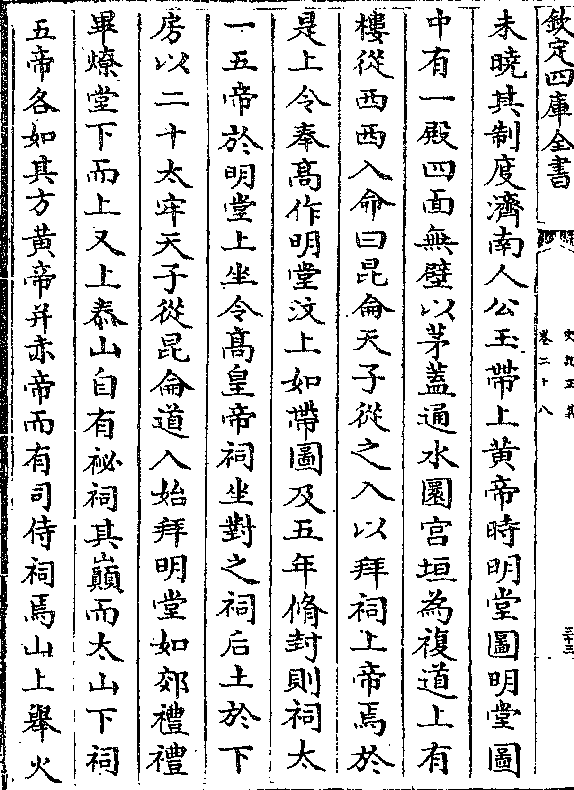 欽定四庫全書
史記正義
卷二十八
三十三
未曉其制度濟南人公玉帶上黃帝時明堂圖明堂圖
中有一殿四面無壁以茅蓋通水圜宮垣為複道上有
樓從西西入命曰昆侖天子從之入以拜祠上帝焉於
是上令奉高作明堂汶上如帶圖及五年脩封則祠太
一五帝於明堂上坐令高皇帝祠坐對之祠后土於下
房以二十太牢天子從昆侖道入始拜明堂如郊禮禮
畢燎堂下而上又上泰山自有祕祠其巔而太山下祠
五帝各如其方黃帝并赤帝而有司侍祠焉山上舉火